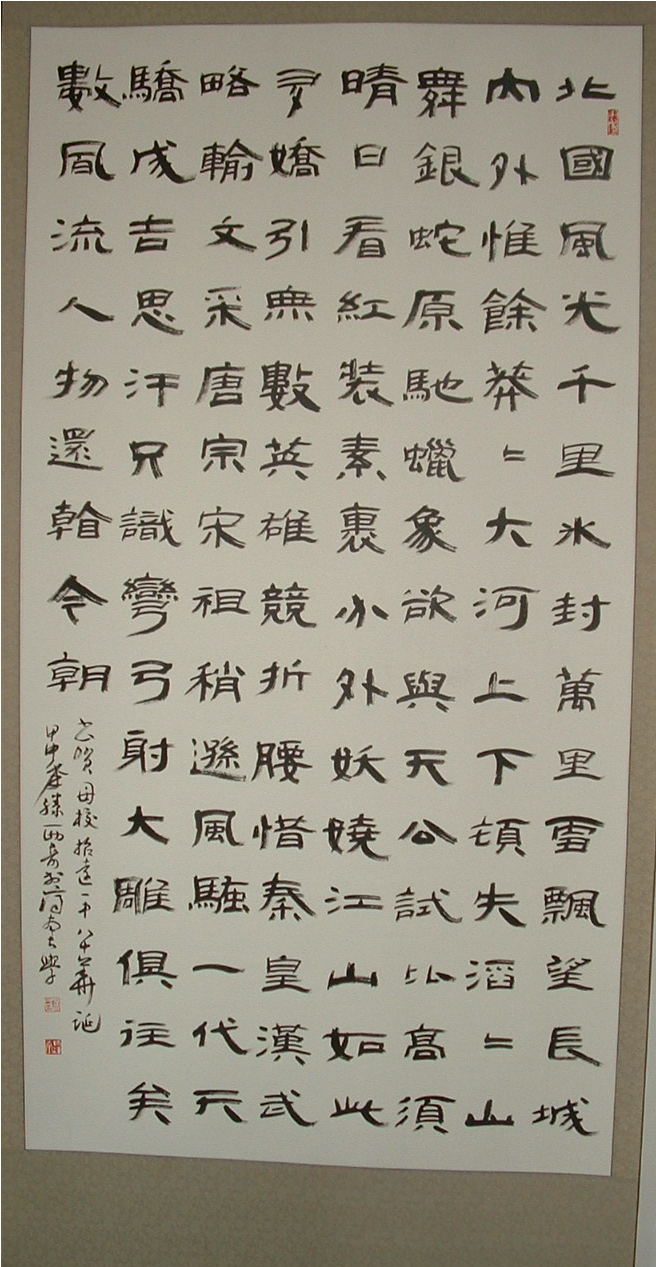 北國風光千里冰封萬里雪飄望長城
內外惟餘莽〻大河上下頓失滔〻山
舞銀蛇原馳蠟象欲與天公試比高須
晴日看紅裝素裹分外妖嬈江山如此
多嬌引無數英雄競折腰惜秦皇漢武
略輸文采唐宗宋祖稍遜風騷一代天
驕成吉思汗只識彎弓射大雕俱往矣
數風流人物還看今朝
恭賀母校招遠一中八十華誕
甲申年滕西奇於大學